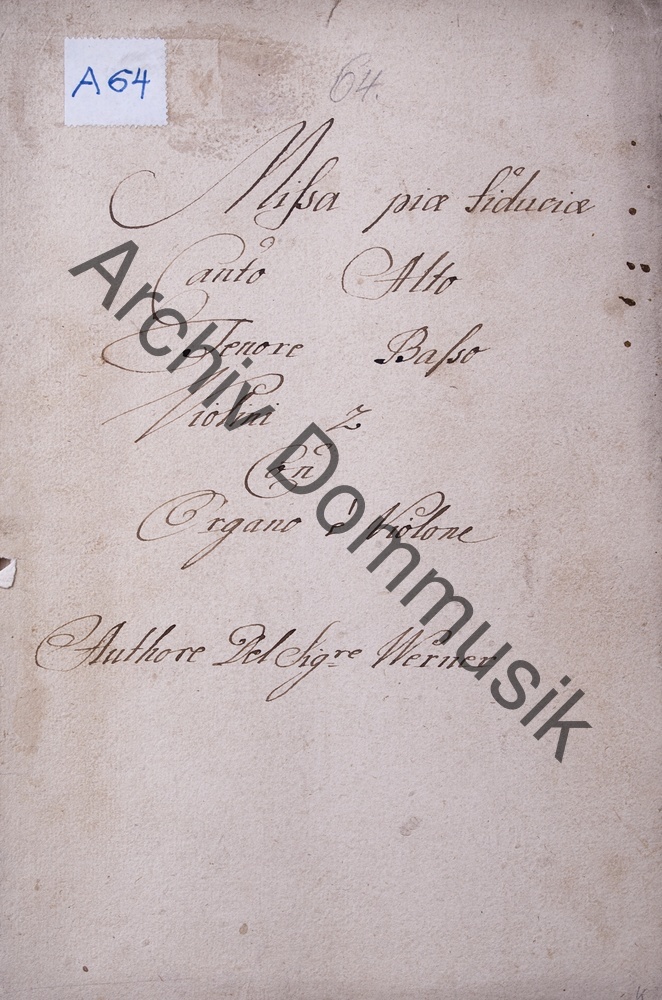 A 64
64.
Missa piæ fiduciæ
Canto Alto
Tenore Basso
Violini 2
Con
Organo è Violone
Authore Del Sigre Werner
Archiv Dommusik